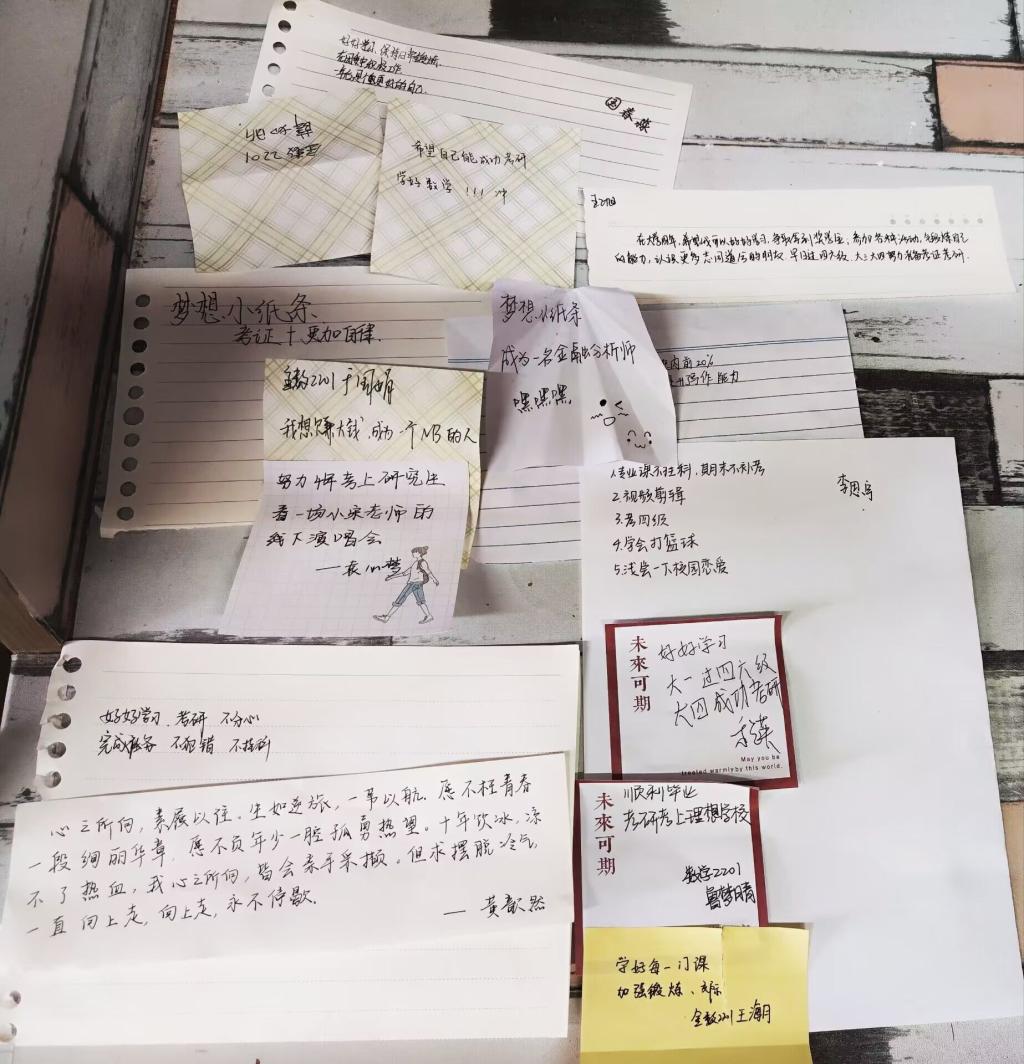 好好学习、保持日常
更好的自己
1022
希望自己能成功考研
学好数学!!!冲
在大学四年,希望我可以好好学习,争取拿到奖学金,参加各种活动,锻炼自己
的能力,认识更多志同道合的朋友.早日过四六级.大三大四努力准备考证考研.
梦想小纸条
考证+更加自律.
梦想小纸条
成为一名金融分析师
嘿嘿嘿
内前20%
写作能力
金数2201于国娟
我想赚大钱,成为一个NB的人
努力4年考上研究生
看一场小宋老师的
线下演唱会
1.专业课不挂科,期末不补考
2.视频剪辑
3.考四级
4.学会打篮球
5.浅尝一下校园恋爱
未來可期
好好学习
大一过四六级
大四成功考研
May you be
treated warmly by this world.
好好学习 考研 不分心
完成任务 不犯错 不挂科
心之所向,素履以往。生如逆旅,一苇以航.愿不枉青春
一段绚丽华章,愿不负年少一腔孤勇热望。十年饮冰,凉
不了热血,我心之所向,皆会素手采撷。但求摆脱冷气,
一直向上走,向上走,永不停歇.
—黄歆然
未來可期
顺利毕业
考研考上理想学校
数学2201
鲁梦晴
学好每一门课
加强锻炼、
金数2201王海月